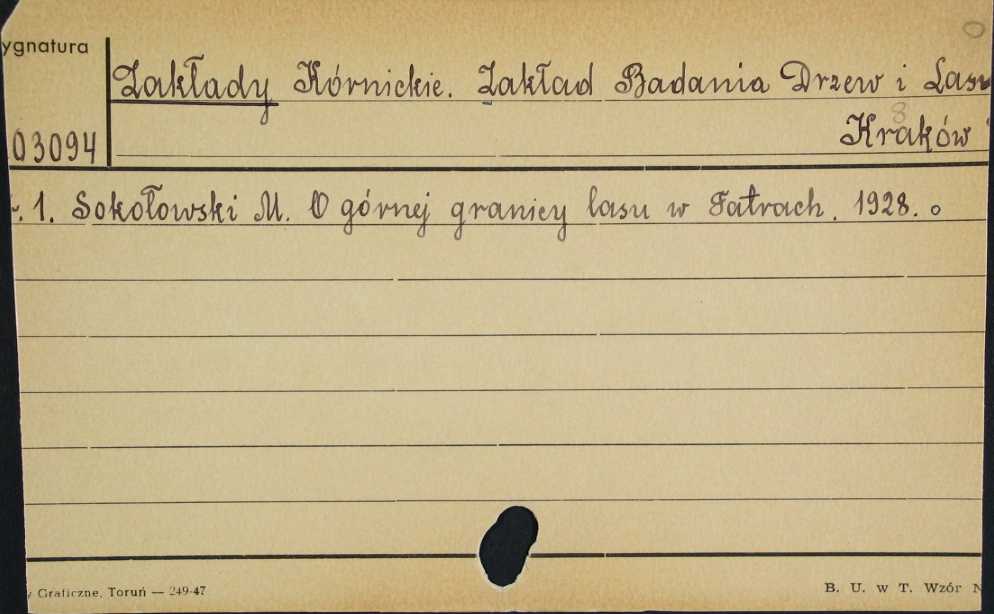 ygnatura
Zakłady Kórnickie. Zakład Badania Drzew i Lasu
8
Kraków
03094
1. Sokołowski M. O górnej granicy lasu w Tatrach. 1928.
Graficzne, Toruń — 249-47
B. U. w T. Wzór N